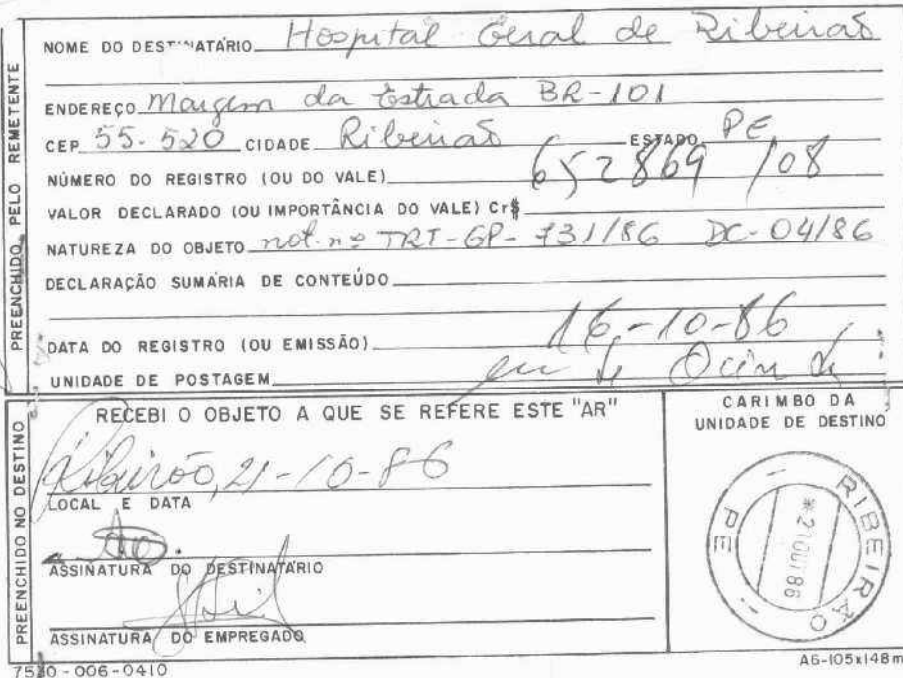 NOME DO DESTINATÁRIO Hospital Geral de Ribeirão
ENDEREÇO Margem da Estrada BR-101
CEP 55-520 CIDADE Ribeirão ESTADO PE
NÚMERO DO REGISTRO (OU DO VALE) 652869 /08
VALOR DECLARADO (OU IMPORTÂNCIA DO VALE) Cr$
NATUREZA DO OBJETO not. nº TRT-GP-731/86 DC-04/86
DECLARAÇÃO SUMÁRIA DE CONTEÚDO
DATA DO REGISTRO (OU EMISSÃO) 16-10-86
UNIDADE DE POSTAGEM
PREENCHIDO PELO REMETENTE
RECEBI O OBJETO A QUE SE REFERE ESTE "AR"
Ribeirão, 21-10-86
LOCAL E DATA
ASSINATURA DO DESTINATÁRIO
ASSINATURA DO EMPREGADO
PREENCHIDO NO DESTINO
CARIMBO DA
UNIDADE DE DESTINO
RIBEIRÃO
PE
*21OUT86
7530-006-0410
A6-105x148m